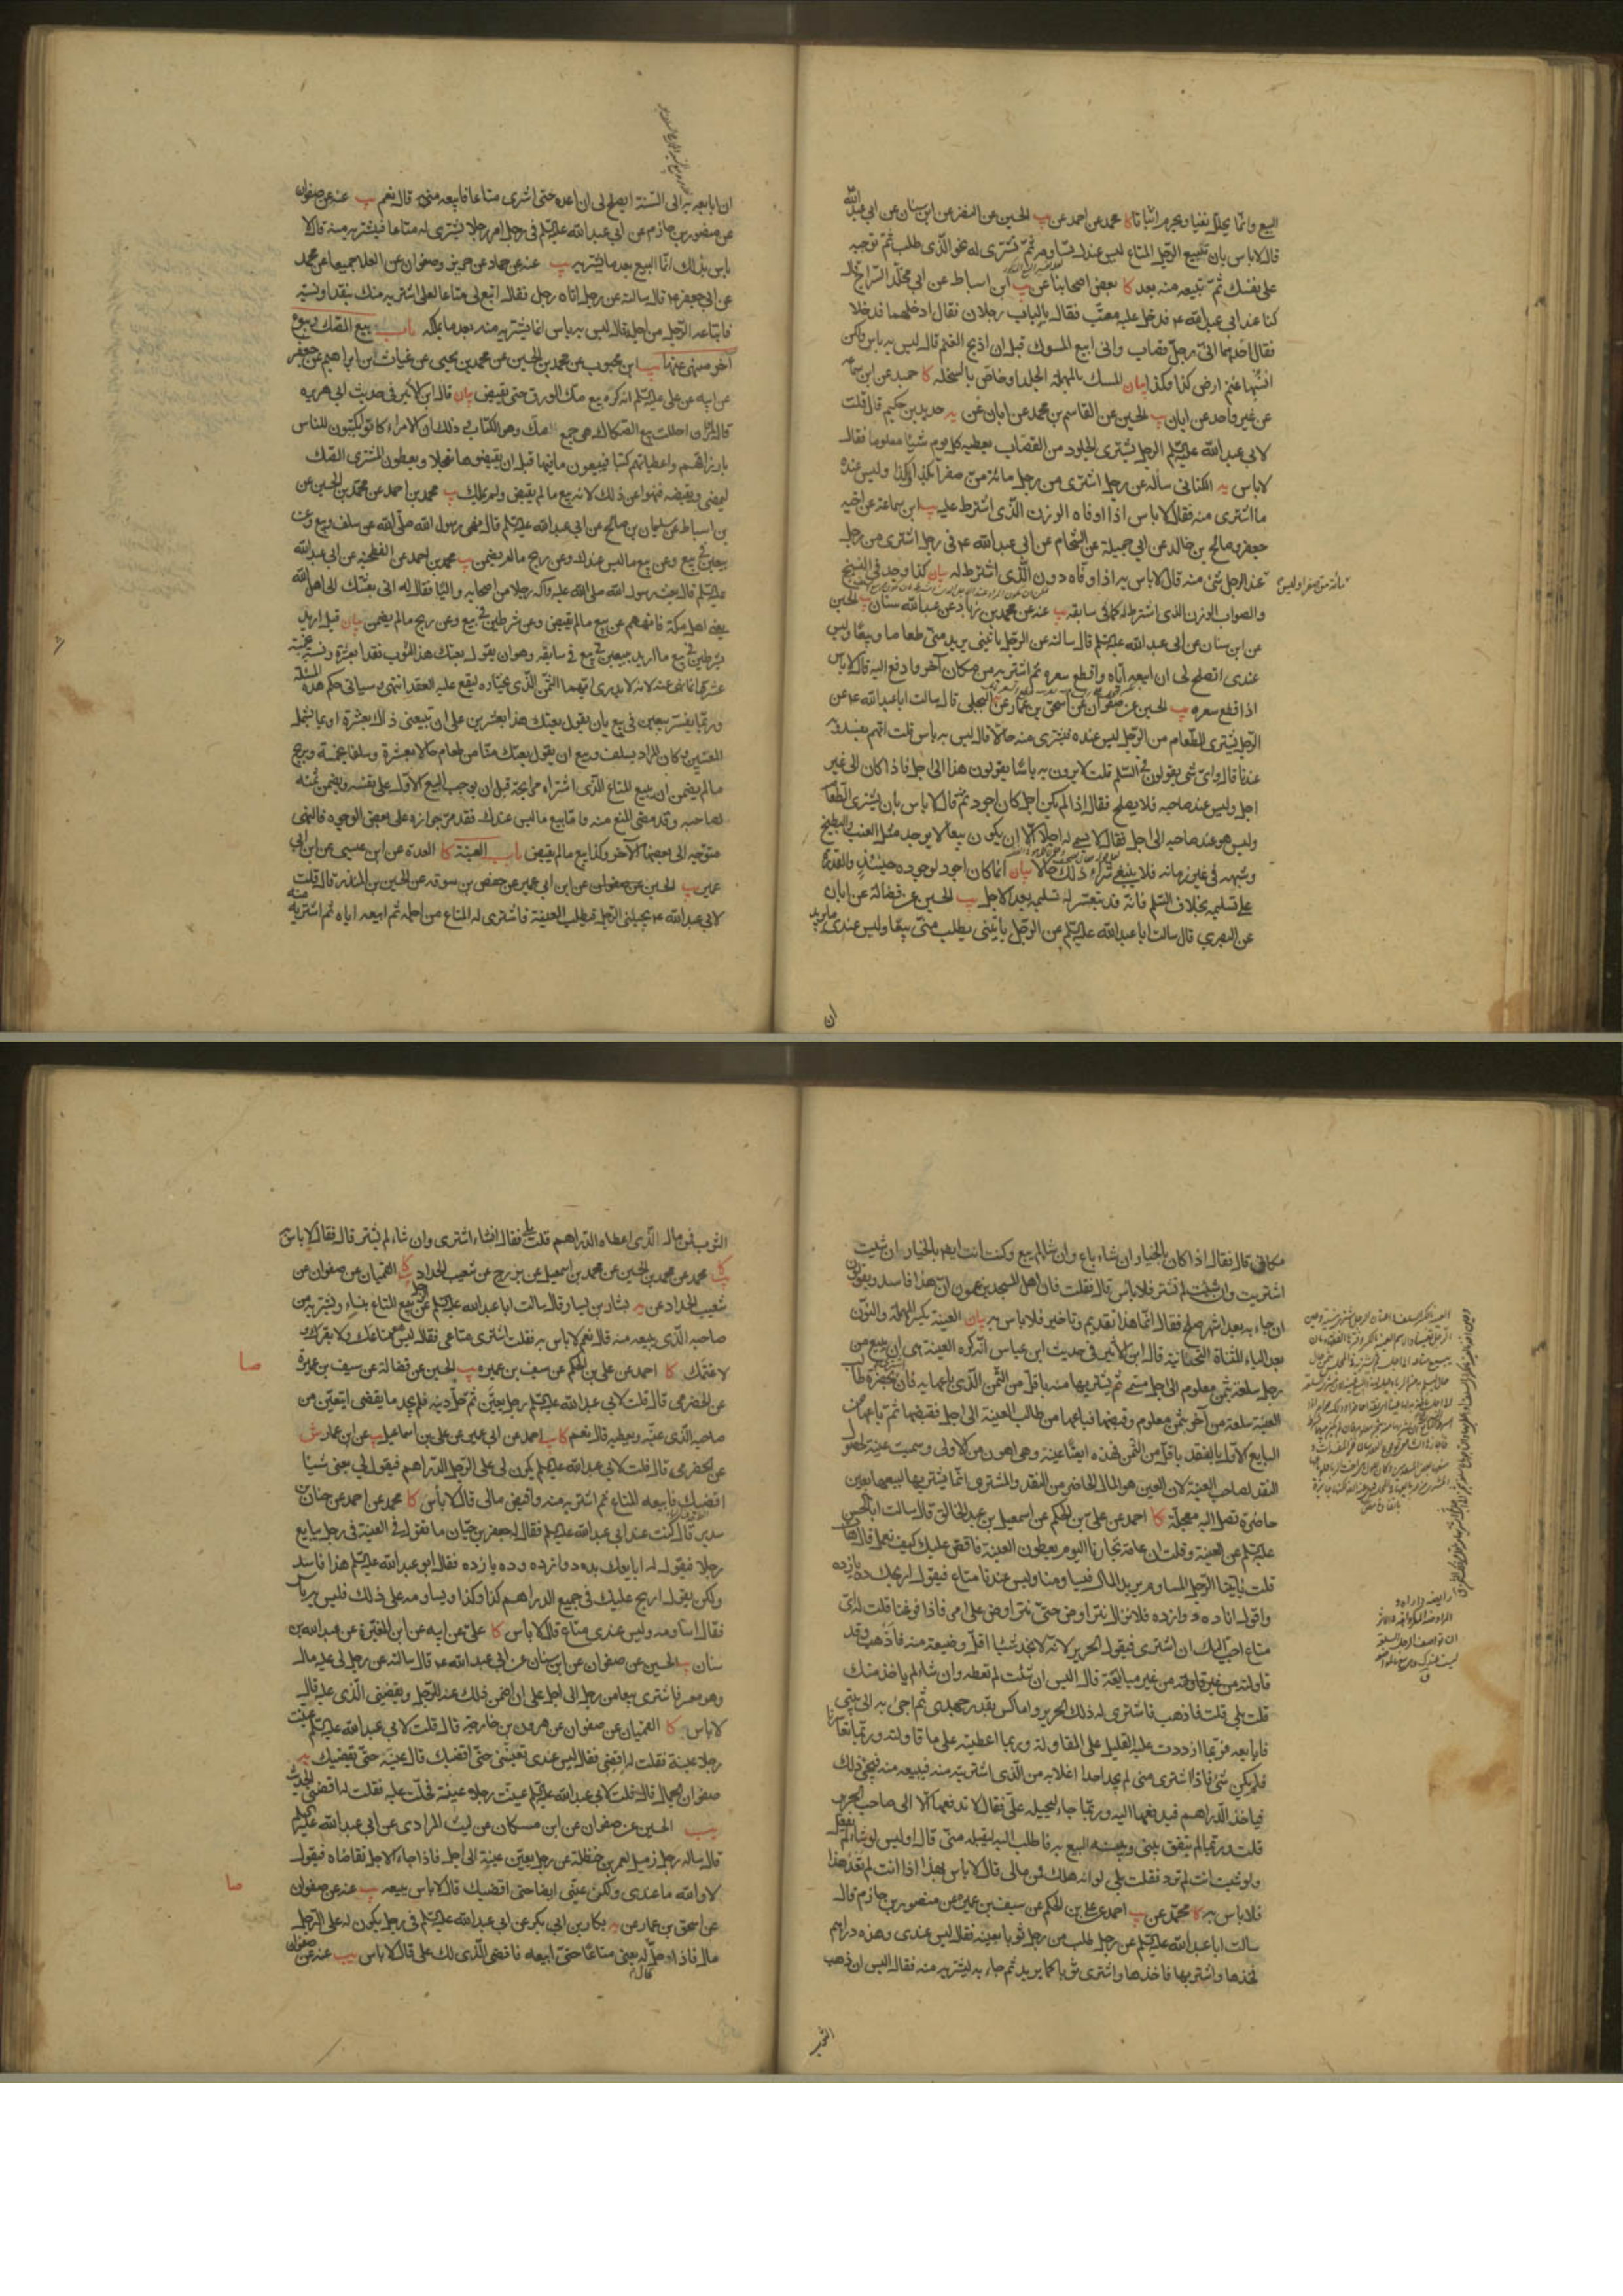 البيع وانما يحلل نفيا ويحرم اثباتا كا محمد عن احمد عن يب الحسين عن النضر عن ابن سنان عن ابي عبد الله
قال لا باس بان تبيع الرجل المتاع ليس عندك تساومه ثم تشترى له نحو الذى طلب ثم توجبه
على نفسك ثم تبيعه منه بعد كا بعض اصحابنا عن يب ابن اسباط عن ابي مخلد السراج قال
كنا عند ابي عبد الله ع فدخل عليه معتب فقال بالباب رجلان فقال ادخلهما فدخلا
فقال احدهما اني رجل قصاب واني ابيع المسوك قبل ان اذبح الغنم قال ليس به باس ولكن
انسبها غنم ارض كذا وكذا بيان المسك بالمهملة الجلد او خاص بالسخلة كا حميد عن ابن سماعه
عن غير واحد عن ابان يب الحسين عن القاسم بن محمد عن ابان عن يه حديد بن حكيم قال قلت
لابي عبد الله عليه السلم الرجل يشترى الجلود من القصاب يعطيه كل يوم شيئا معلوما فقال
لا باس يه الكناني سألته عن رجل اشترى من رجل مائة من صفرا بكذا وكذا وليس عنده
ما اشترى منه فقال لا باس اذا اوفاه الوزن الذى اشترط عليه يب ابن سماعة عن اخيه
جعفر وصالح بن خالد عن ابي جميلة عن الشحام عن ابي عبد الله ع في رجل اشترى من رجل
مائة من صفر او ليس
عند الرجل شئ منه قال لا باس به اذا اوفاه دون الذى اشترط له بيان كذا وجد في النسخ
والصواب الوزن الذى اشترط له كما في سابقه يب عنه عن محمد بن زياد عن عبد الله سنان يب الحسين
عن ابن سنان عن ابي عبد الله عليه السلم قال سالته عن الرجل ياتيني يريد مني طعاما وبيعا وليس
عندى ايصلح لي ان ابيعه اياه واقطع سعره ثم اشتريه من مكان آخر وادفع اليه قال لا باس
اذا قطع سعره يب الحسين عن صفوان عن اسحق بن عمار عن البجلي قال سالت ابا عبد الله ع عن
الرجل يشترى الطعام من الرجل ليس عنده فيشترى منه حالا قال ليس به باس قلت انهم يفسدونه
عندنا قال واى شى يقولون في السلم قلت لا يرون به باسا يقولون هذا الى اجل فاذا كان الى غير
اجل وليس عند صاحبه فلا يصلح فقال اذا لم يكن اجل كان اجود ثم قال لا باس بان يشترى الطعام
وليس هو عند صاحبه الى اجل فقال لا يسمى له اجلا الا ان يكون بيعا لا يوجد مثل العنب والبطيخ
وشبهه في غير زمانه فلا ينبغي شراء ذلك حالا بيان انما كان اجود لوجوده حينئذ والقدرة
على تسليمه بخلاف السلم فانه قد يتعسر له تسليمه بعد الاجل يب الحسين عن فضالة عن ابان
عن البصري قال سالت ابا عبد الله عليه السلم عن الرجل ياتيني يطلب مني بيعا وليس عندى ما يريد
ان
ان ابايعه به الى السنة ايصلح لي ان اعده حتى اشترى متاعا فابيعه منه قال نعم يب عنه عن صفوان
عن منصور بن حازم عن ابي عبد الله عليه السلم في رجل امر رجلا يشترى له متاعا فيشتريه منه قال لا
باس بذلك انما البيع بعد ما يشتريه يب عنه عن حماد عن حريز وصفوان عن العلا جميعا عن محمد
عن ابي جعفر ع قال سالته عن رجل اتاه رجل فقال ابتع لي متاعا لعلى اشتريه منك بنقد او نسيه
فابتاعه الرجل من اجله قال ليس به باس انما يشتريه منه بعد ما يملكه باب بيع الصك وبيوع
آخر منهى عنها يب ابن محبوب عن محمد بن الحسين عن محمد بن يحيى عن غياث بن ابراهيم عن جعفر
عن ابيه عن على عليه السلم انه كره بيع صك الورق حتى يقبض بيان قال ابن الاثير في حديث ابي هريره
قال لمروان احللت بيع الصكاك هي جمع صك وهو الكتاب وذلك ان الامراء كانوا يكتبون للناس
بارزاقهم واعطياتهم كتبا فيبيعون ما فيها قبل ان يقبضوها تعجلا ويعطون المشترى الصك
ليمضى ويقبضه فنهوا عن ذلك لانه بيع ما لم يقبض ولم يملك يب محمد بن احمد عن محمد بن الحسين عن
بن اسباط عن سليمان بن صالح عن ابي عبد الله عليه السلم قال نهى رسول الله صلى الله عن سلف وبيع وعن
بيعين في بيع وعن بيع ما ليس عندك وعن ربح ما لم يضمن يب محمد بن احمد عن الفطحية عن ابي عبد الله
عليه السلم قال بعث رسول الله صلى الله عليه وآله رجلا من اصحابه واليا فقال له اني بعثتك الى اهل الله
يعنى اهل مكة فانههم عن بيع ما لم يقبض وعن شرطين في بيع وعن ربح ما لم يضمن بيان قيل اريد
بشرطين في بيع ما اريد ببيعين في بيع في سابقه وهو ان يقول بعتك هذا الثوب نقدا بعشرة ونسية بخمسة
عشر وانما نهى عنه لانه لا يدرى ايهما الثمن الذى يختاره ليقع عليه العقد انتهى وسياتي حكم هذه المسئلة
وربما يفسر ببيعين في بيع بان يقول بعتك هذا بعشرين على ان تبيعنى ذاك بعشرة او ما يشمل
المعنيين وكان المراد بسلف وبيع ان يقول بعتك منا من طعام حالا بعشرة وسلفا بخمسة وبربح
ما لم يضمن ان يبيع المتاع الذى اشتراه مرابحة قبل ان يوجب البيع الاول على نفسه ويضمن ثمنه
لصاحبه وقد مضى المنع منه واما بيع ما ليس عندك فقد مر جوازه على بعض الوجوه فالنهى
متوجه الى بعضها الآخر وكذا بيع ما لم يقبض باب العينة كا العدة عن ابن عيسى عن ابن ابي
عمير يب الحسين عن صفوان عن ابن ابي عمير عن حفص بن سوقه عن الحسين بن المنذر قال قلت
لابي عبد الله ع يجيئنى الرجل فيطلب العينة فاشترى له المتاع من اجله ثم ابيعه اياه ثم اشتريه منه
مكاني قال فقال اذا كان بالخيار ان شاء باع وان شاء لم يبع وكنت انت ايضا بالخيار ان شئت
اشتريت وان شئت لم تشتر فلا بأس قال فقلت فان اهل المسجد يزعمون ان هذا فاسد ويقولون
ان جاء به بعد اشهر صلح فقال انما هذا تقديم وتاخير فلا باس به بيان العينة بكسر المهملة والنون
بعد الياء المثناة التحتانية قال ابن الاثير في حديث ابن عباس انه كره العينة هى ان يبيع من
رجل سلعة بثمن معلوم الى اجل مسمى ثم يشتريها منه باقل من الثمن الذى باعها به فان اشترى بحضرة طالب
العينة سلعة من آخر بثمن معلوم وقبضها فباعها من طالب العينة الى اجل فقبضها ثم باعها من
البايع الاول بالنقد باقل من الثمن فهذه ايضا عينة وهى اهون من الاولى وسميت عينة لحصول
النقد لصاحب العينة لان العين هو المال الحاضر من النقد والمشترى انما يشتريها ليبيعها بعين
حاضرة تصل اليه معجلة كا احمد عن على بن الحكم عن اسمعيل بن عبد الخالق قال سالت ابا الحسن
عليه السلم عن العينة وقلت ان عامة تجارنا اليوم يعطون العينة فاقص عليك كيف نعمل قال هات
قلت ياتينا الرجل المساوم يريد المال فيساومنا وليس عندنا متاع فيقول اربحك ده يازده
واقول انا ده دوازده فلا نزال نتراوض حتى نتراوض على امر فاذا فرغنا قلت له اى
متاع احب اليك ان اشترى فيقول الحرير لانه لا يجد شيئا اقل وضيعة منه فاذهب وقد
قاولته من غير مبايعة قال اليس ان شئت لم تعطه وان شاء لم ياخذ منك
قلت بلى قلت فاذهب فاشترى له ذلك الحرير واماكس بقدر جهدى ثم اجئ به الى بيتى
فابايعه فربما ازددت عليه القليل على المقاولة وربما اعطيته على ما قاولته وربما تعاسرنا
فلم يكن شئ فاذا اشترى منى لم يجد احدا اغلا به من الذى اشتريته منه فيبيعه منه فيجئ ذلك
فياخذ الدراهم فيدفعها اليه وربما جاء ليحيله على فقال لا تدفعها الا الى صاحب الحرير
قلت وربما لم يتفق بينى وبينه البيع به فاطلب اليه ليقبله منى قال اوليس لو شاء لم يفعل
ولو شئت انت لم ترد فقلت بلى لو انه هلك فمن مالى قال لا باس بهذا اذا انت لم تعد هذا
فلا باس به كا محمد عن يب احمد عن على بن الحكم عن سيف بن عميره عن منصور بن حازم قال
سالت ابا عبد الله عليه السلم عن رجل طلب من رجل ثوبا بعينه فقال ليس عندى وهذه دراهم
فخذها واشتر بها فاخذها واشترى ثوبا كما يريد ثم جاء به ليشتريه منه فقال اليس ان ذهب
الثوب فمن مال الذى اعطاه الدراهم قلت بلى فقال ان شاء اشترى وان شاء لم يشتر قال فقال لا باس به
كا يب محمد عن محمد بن الحسين عن محمد بن اسمعيل عن بزرج عن شعيب الحداد كا القميان عن صفوان عن
شعيب الحداد عن يه بشار بن يسار قال سالت ابا عبد الله عليه السلم عن الرجل يبيع المتاع بنساء ويشتريه من
صاحبه الذى يبيعه منه قال نعم لا باس به فقلت اشترى متاعى فقال ليس هو متاعك ولا بقرك ولا
لا غنمك كا احمد عن على بن الحكم عن سيف بن عميره يب الحسين عن فضالة عن سيف بن عميرة
صا
عن الحضرمى قال قلت لابي عبد الله عليه السلم رجل يعين ثم حل دينه فلم يجد ما يقضى ايتعين من
صاحبه الذى عينه ويعطيه قال نعم كا يب احمد عن ابي عمير عن على بن اسماعيل يب عن ابن عمار ش
عن الحضرمى قال قلت لابي عبد الله عليه السلم يكون لى على الرجل الدراهم فيقول لي بعنى شيئا
اقضيك فابيعه المتاع ثم اشتريه منه واقبض مالى قال لا بأس كا محمد عن احمد عن حنان بن
سدير قال كنت عند ابي عبد الله عليه السلم فقال له جعفر بن حيان ما تقول في العينة في رجل يبايع
رجلا فيقول له ابايعك بده دوازده وده يازده فقال ابو عبد الله عليه السلم هذا فاسد
ولكن يقول اربح عليك في جميع الدراهم كذا وكذا ويساومه على ذلك فليس به بأس
فقال اساومه وليس عندى متاع قال لا باس كا على عن ابيه عن ابن المغيرة عن عبد الله بن
سنان يب الحسين عن صفوان عن ابن سنان عن ابي عبد الله ع قال سالته عن رجل لى عليه مال
وهو معسر فاشترى بيعا من رجل الى اجل على ان اضمن ذلك عنه للرجل ويقضينى الذى عليه قال
لا باس كا القميان عن صفوان عن هرون بن خارجة قال قلت لابي عبد الله عليه السلم عينت
رجلا عينة فقلت له اقضنى فقال ليس عندى تعيننى حتى اقضيك قال عينه حتى يقضيك يه
صفوان الجمال قال قلت لابي عبد الله عليه السلم عينت رجلا عينة فحلت عليه فقلت له اقضنى الحديث
يب الحسين عن صفوان عن ابن مسكان عن ليث المرادى عن ابي عبد الله عليه السلم
قال ساله رجل زميل لعمر بن حنظلة عن رجل يعين عينة الى اجل فاذا جاء الاجل تقاضاه فيقول
لا والله ما عندى ولكن عينى ايضا حتى اقضيك قال لا باس ببيعه يب عنه عن صفوان
صا
عن اسحق بن عمار عن يه بكار بن ابي بكر عن ابي عبد الله عليه السلم في رجل يكون له على الرجل
مال فاذا حل قال له بعنى متاعا حتى ابيعه فاقضى الذى لك على قال لا باس يب عنه عن صفوان